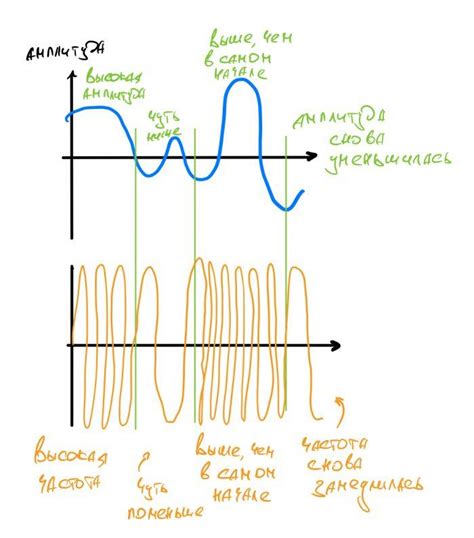 Амплитуда
Высокая
амплитуда
Чуть
ниже
Выше, чем
в самом
начале
Амплитуда
снова
уменьшилась
Высокая
частота
Чуть
поменьше
Выше, чем
в самом
начале
Частота
снова
замедлилась